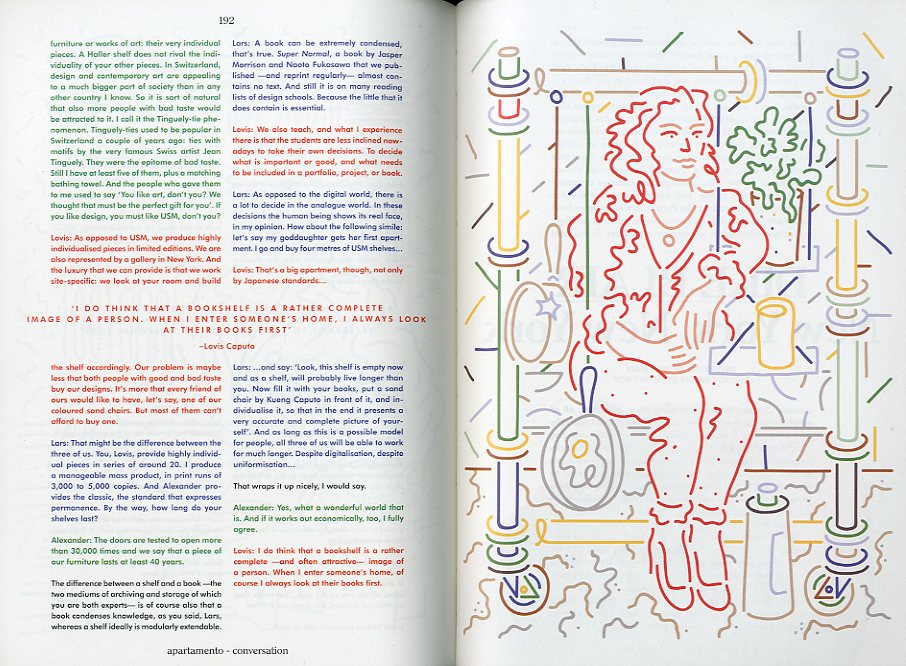 192
furniture or works of art: their very individual
pieces. A Haller shelf does not rival the indi-
viduality of your other pieces. In Switzerland,
design and contemporary art are appealing
to a much bigger part of society than in any
other country I know. So it is sort of natural
that also more people with bad taste would
be attracted to it. I call it the Tinguely-tie phe-
nomenon. Tinguely-ties used to be popular in
Switzerland a couple of years ago: ties with
motifs by the very famous Swiss artist Jean
Tinguely. They were the epitome of bad taste.
Still I have at least five of them, plus a matching
bathing towel. And the people who gave them
to me used to say ‘You like art, don’t you? We
thought that must be the perfect gift for you’. If
you like design, you must like USM, don’t you?
Lovis: As opposed to USM, we produce highly
individualised pieces in limited editions. We are
also represented by a gallery in New York. And
the luxury that we can provide is that we work
site-specific: we look at your room and build
Lars: A book can be extremely condensed,
that’s true. Super Normal, a book by Jasper
Morrison and Naoto Fukasawa that we pub-
lished —and reprint regularly— almost con-
tains no text. And still it is on many reading
lists of design schools. Because the little that it
does contain is essential.
Lovis: We also teach, and what I experience
there is that the students are less inclined now-
adays to take their own decisions. To decide
what is important or good, and what needs
to be included in a portfolio, project, or book.
Lars: As opposed to the digital world, there is
a lot to decide in the analogue world. In these
decisions the human being shows its real face,
in my opinion. How about the following simile:
let’s say my goddaughter gets her first apart-
ment. I go and buy four metres of USM shelves...
Lovis: That’s a big apartment, though, not only
by Japanese standards...
‘I DO THINK THAT A BOOKSHELF IS A RATHER COMPLETE
IMAGE OF A PERSON. WHEN I ENTER SOMEONE’S HOME, I ALWAYS LOOK
AT THEIR BOOKS FIRST’
–Lovis Caputo
the shelf accordingly. Our problem is maybe
less that both people with good and bad taste
buy our designs. It’s more that every friend of
ours would like to have, let’s say, one of our
coloured sand chairs. But most of them can’t
afford to buy one.
Lars: That might be the difference between the
three of us. You, Lovis, provide highly individ-
ual pieces in series of around 20. I produce
a manageable mass product, in print runs of
3,000 to 5,000 copies. And Alexander pro-
vides the classic, the standard that expresses
permanence. By the way, how long do your
shelves last?
Alexander: The doors are tested to open more
than 30,000 times and we say that a piece of
our furniture lasts at least 40 years.
The difference between a shelf and a book —the
two mediums of archiving and storage of which
you are both experts— is of course also that a
book condenses knowledge, as you said, Lars,
whereas a shelf ideally is modularly extendable.
Lars: ...and say: ‘Look, this shelf is empty now
and as a shelf, will probably live longer than
you. Now fill it with your books, put a sand
chair by Kueng Caputo in front of it, and in-
dividualise it, so that in the end it presents a
very accurate and complete picture of your-
self’. And as long as this is a possible model
for people, all three of us will be able to work
for much longer. Despite digitalisation, despite
uniformisation...
That wraps it up nicely, I would say.
Alexander: Yes, what a wonderful world that
is. And if it works out economically, too, I fully
agree.
Lovis: I do think that a bookshelf is a rather
complete —and often attractive— image of
a person. When I enter someone’s home, of
course I always look at their books first.
apartamento - conversation